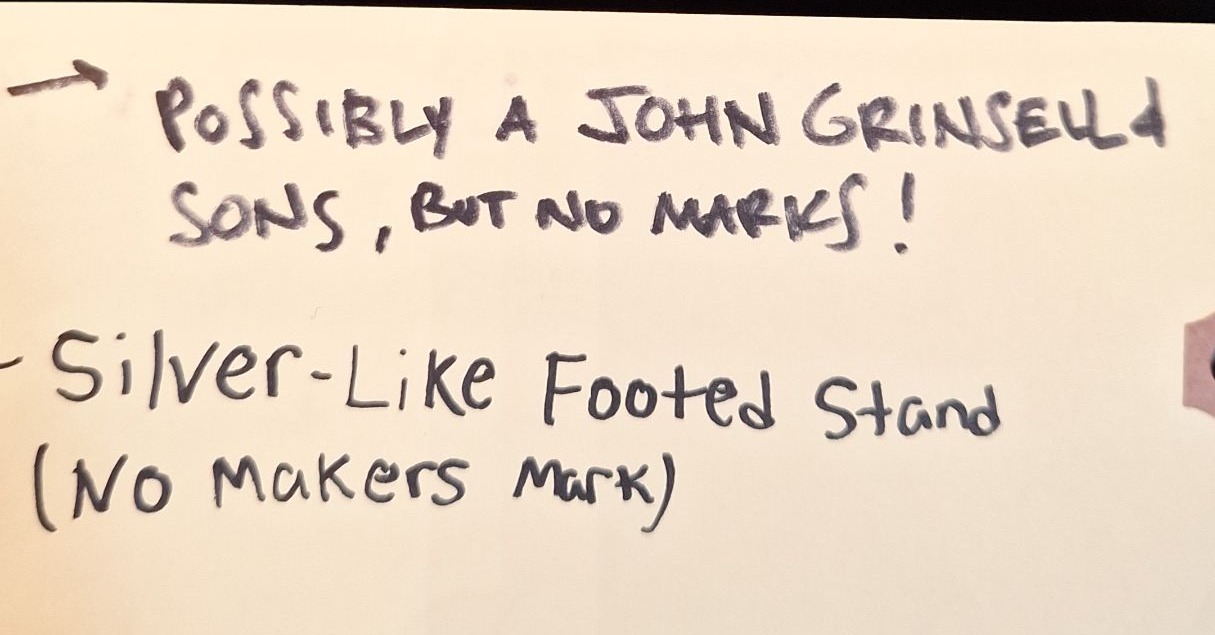 → POSSIBLY A JOHN GRINSELL &
SONS, BUT NO MARKS!
- Silver-Like Footed Stand
(No Makers Mark)